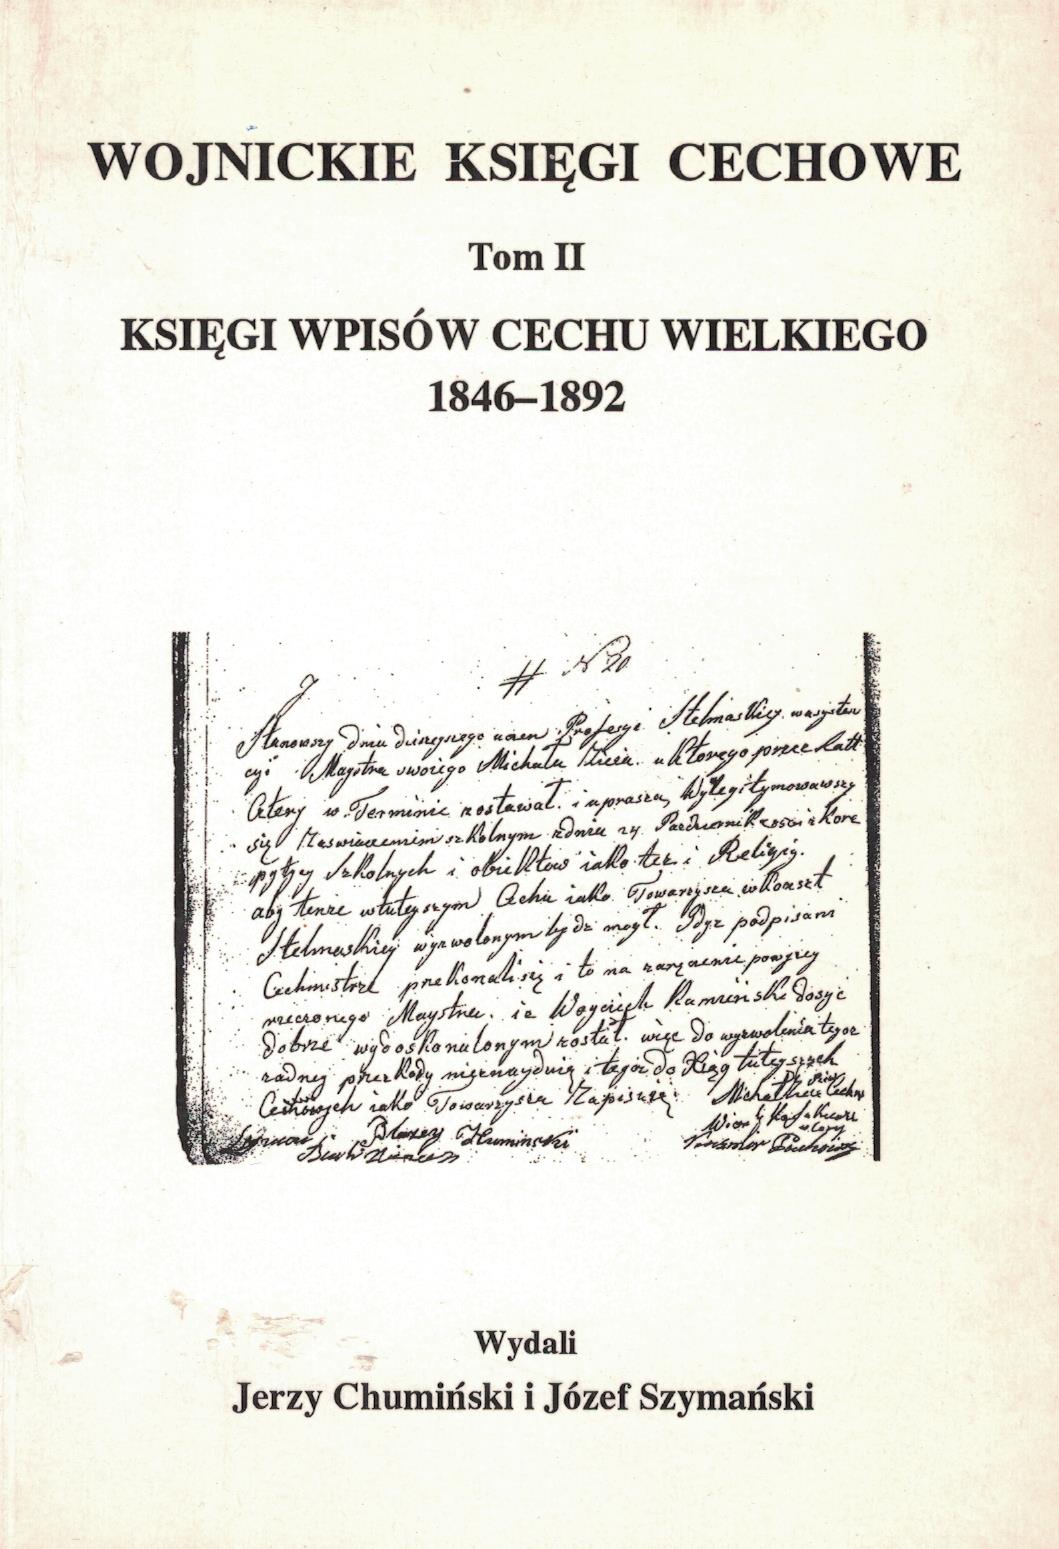 WOJNICKIE KSIĘGI CECHOWE
Tom II
KSIĘGI WPISÓW CECHU WIELKIEGO
1846–1892
# N 20
Stanowszy dnia dzisieyszego uczen Profesyi Stelmaskiey wasysten
cyi Maystra swoiego Michała u ktorego przez Latt
cztery w Terminie zostawał i uprasza, wylegitymowawszy
się Zaswiadczeniem szkolnym zdnia 24 Pazdziernik
szkolnych i obiektow iako tez i Religiy.
aby tenze wtuteyszym Cechu iako Towarzysz w Konszt
Stelmaskiey wyzwolonym bydz mogł. Gdyz podpisani
Cechmistrze przekonali się i to na zaręczenie powyzey
rzeczonego Maystra. iz Woyciech Kamiński dosyc
dobrze wydoskonalonym został. więc do wyzwolenia tegoz
zadney przeszkody nieznayduią i tegoz do Xiąg tuteyszych
Cechowych iako Towarzysza Zapisuię
Błazey Humiński
Wydali
Jerzy Chumiński i Józef Szymański